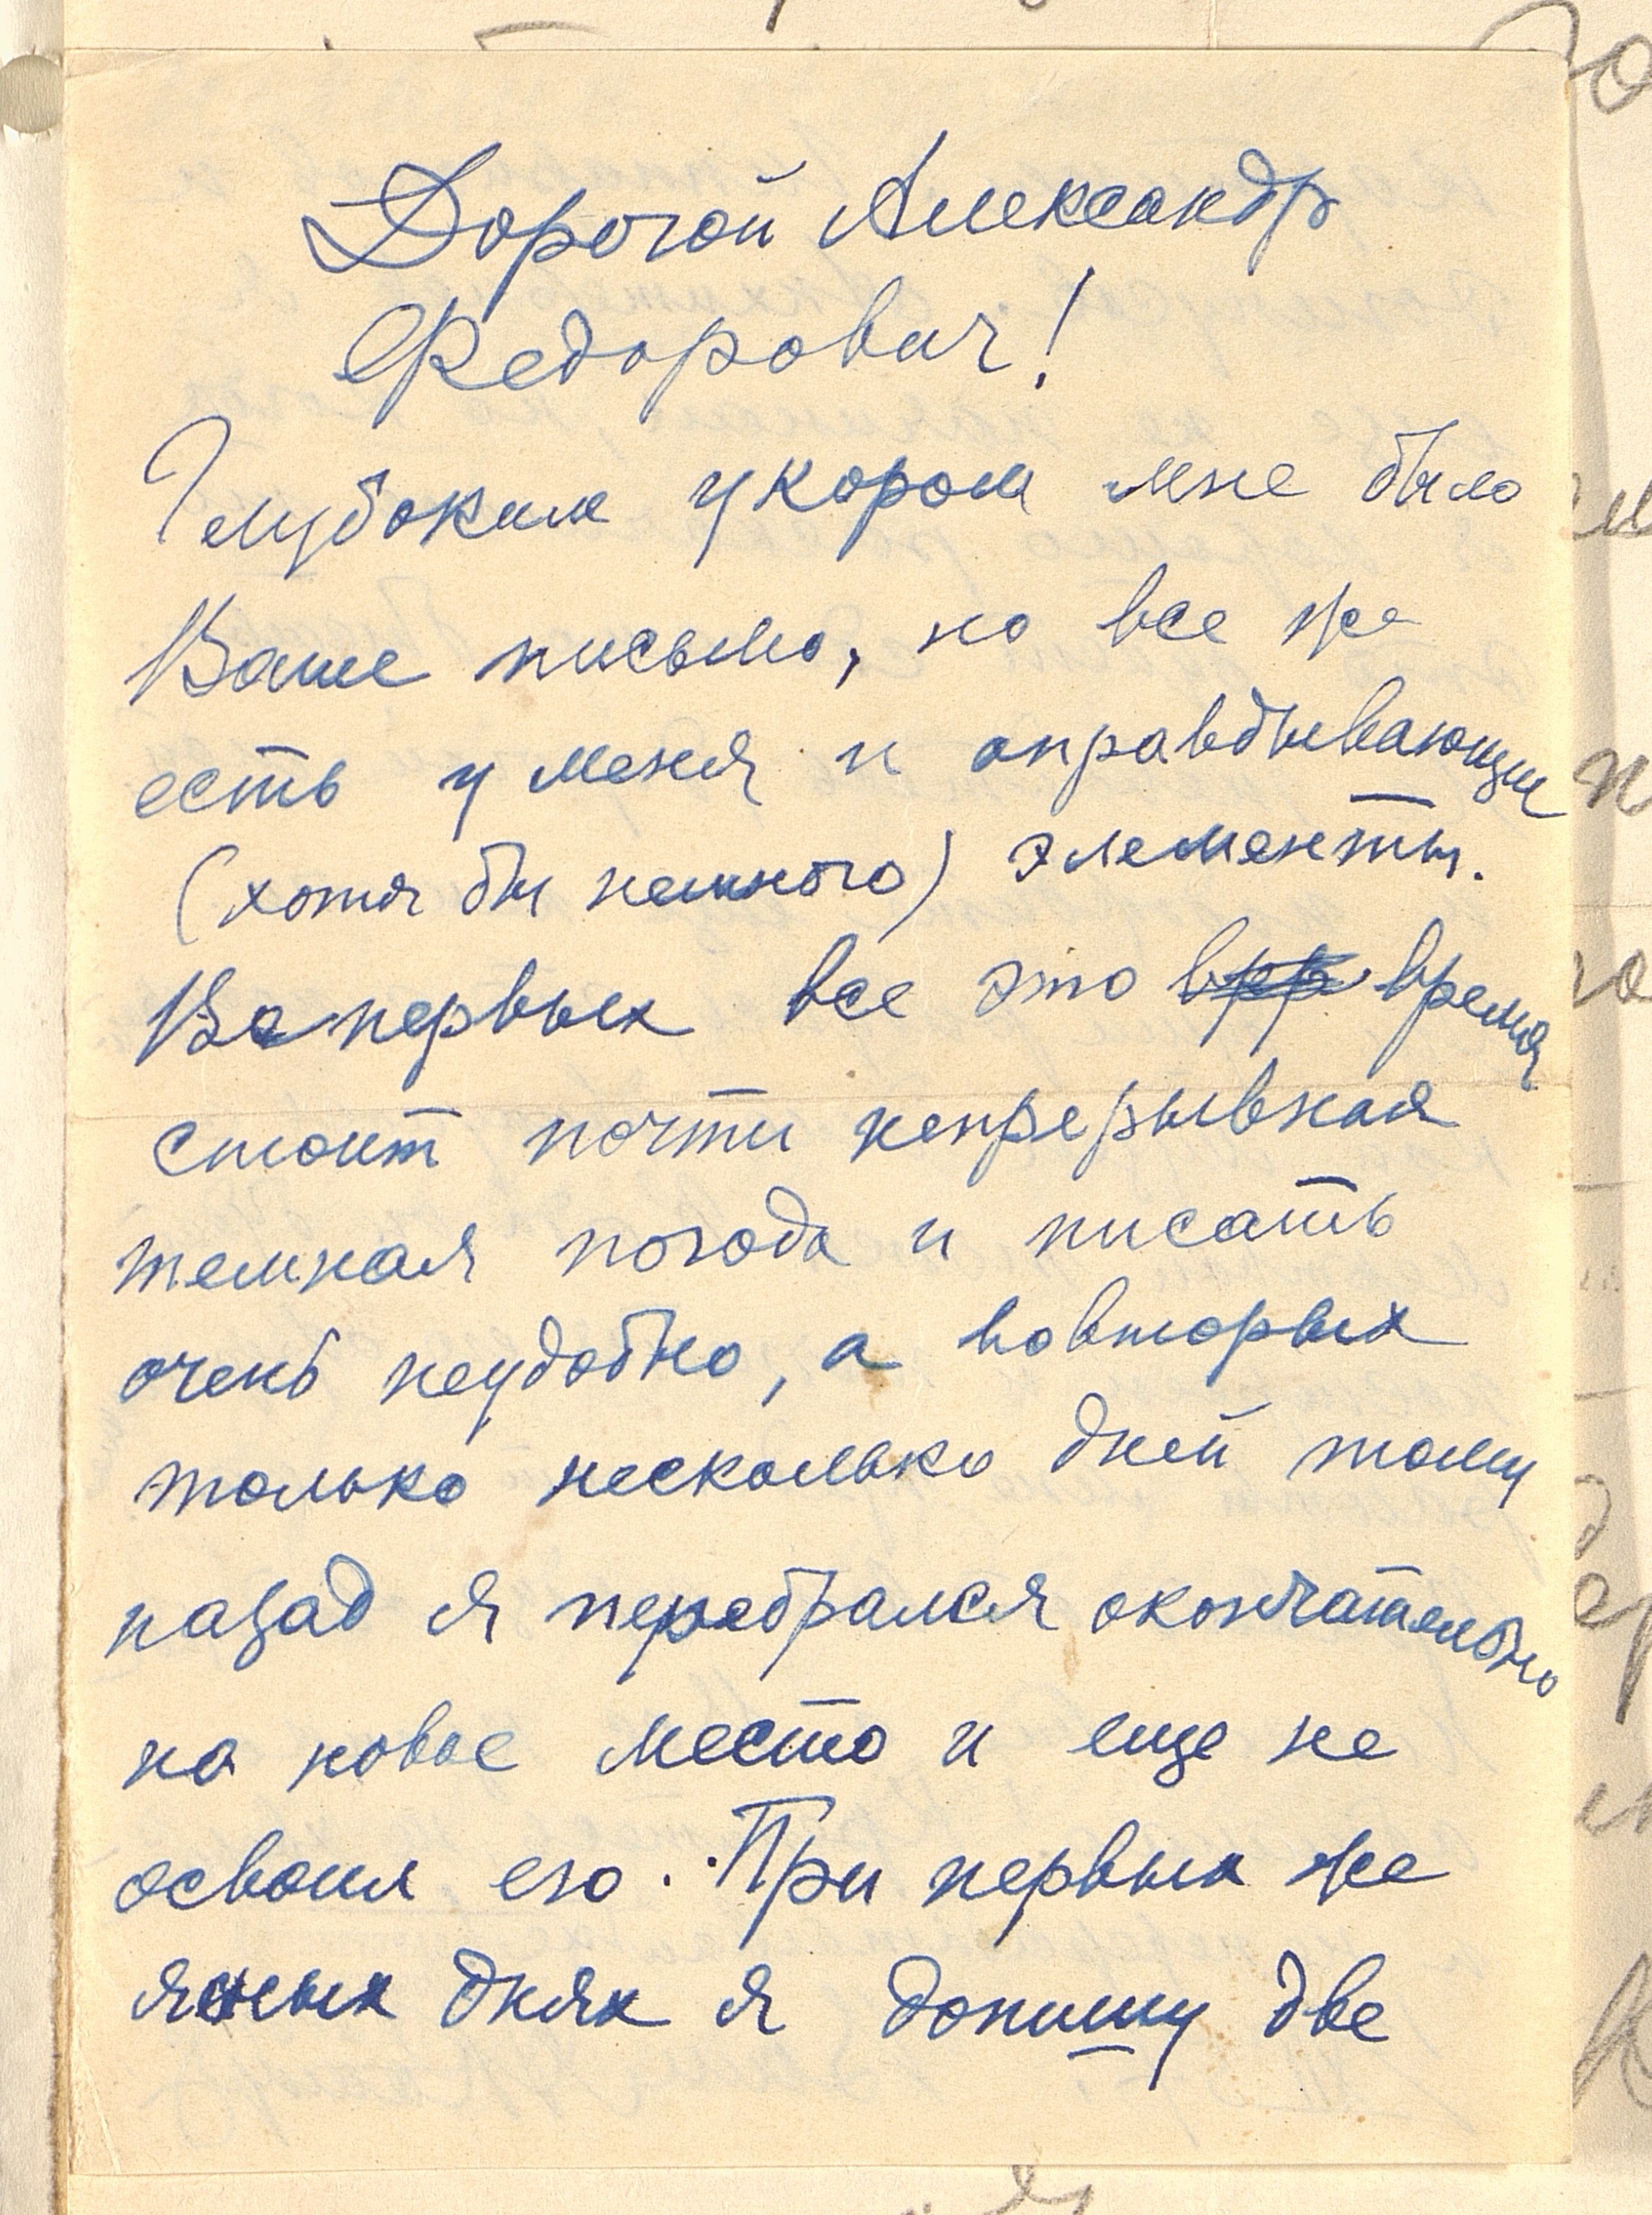 Дорогой Александр
Федорович!
Глубоким укором мне было
Ваше письмо, но все же
есть у меня и оправдывающие
(хотя бы немного) элементы.
Вопервых все это время
стоит почти непрерывная
темная погода и писать
очень неудобно, а вовторых
только несколько дней тому
назад я перебрался окончательно
на новое место и еще не
освоил его. При первых же
ясных днях я допишу две